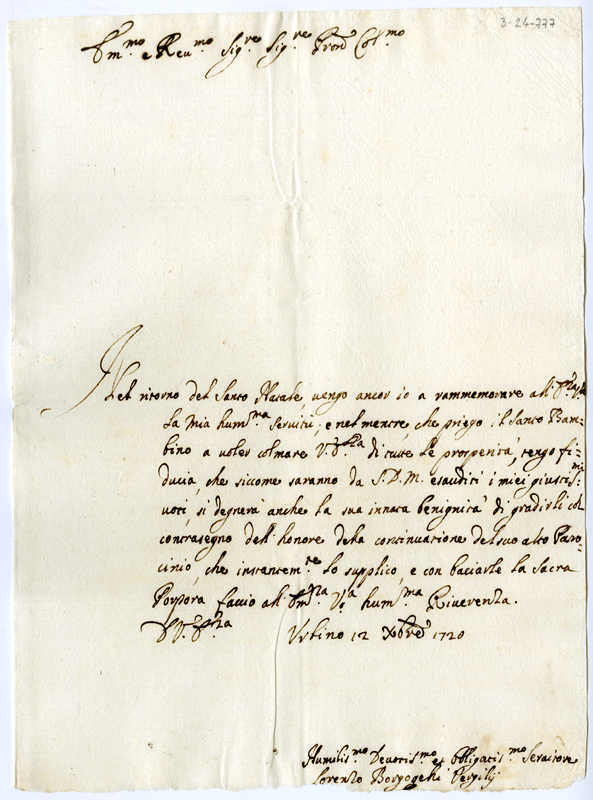 3-24-777
Em.mo e Reu.mo Sig.re Sig.re Pron Col.mo
Nel ritorno del Santo Natale, uengo ancor io a rammemorare all'E.za V.a
la mia hum.ma Seruitù; e nel mentre, che priego il Santo Bam=
bino a uoler colmare V. E.za di tutte le prosperità, tengo fi=
ducia, che siccome saranno da S. D. M. esauditi i miei giustis.mi
uoti, si degnerà anche la sua innata benignità di gradirli col
contrasegno dell'honore della continuatione del suo alto Patro=
cinio, che instantem.te lo supplico, e con baciarle la Sacra
Porpora faccio all'Em.za V.a hum.ma Riuerenza.
D V. E.za Vrbino 12 Xbre 1720
Humilis.mo Deuotis.mo et Obligatis.mo Seruitore
Lorenzo Borgogelli Vergilij